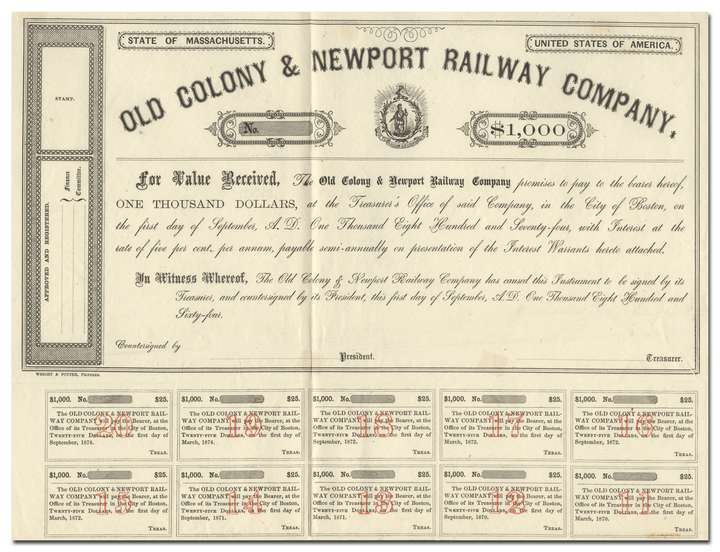 STATE OF MASSACHUSETTS.
UNITED STATES OF AMERICA.
OLD COLONY & NEWPORT RAILWAY COMPANY.
No.
$1,000
STAMP.
APPROVED AND REGISTERED.
Finance Committee.
For Value Received, The Old Colony & Newport Railway Company promises to pay to the bearer hereof,
ONE THOUSAND DOLLARS, at the Treasurer's Office of said Company, in the City of Boston, on
the first day of September, A. D. One Thousand Eight Hundred and Seventy-four, with Interest at the
rate of five per cent. per annum, payable semi-annually on presentation of the Interest Warrants hereto attached.
In Witness Whereof, The Old Colony & Newport Railway Company has caused this Instrument to be signed by its
Treasurer, and countersigned by its President, this first day of September, A.D. One Thousand Eight Hundred and
Sixty-four.
Countersigned by
President.
Treasurer.
WRIGHT & POTTER, Printers.
$1,000. No. $25.
The OLD COLONY & NEWPORT RAIL-
WAY COMPANY will pay the Bearer, at the
Office of its Treasurer, in the City of Boston,
TWENTY-FIVE DOLLARS, on the first day of
September, 1874.
TREAS.
20
$1,000. No. $25.
The OLD COLONY & NEWPORT RAIL-
WAY COMPANY will pay the Bearer, at the
Office of its Treasurer, in the City of Boston,
TWENTY-FIVE DOLLARS, on the first day of
March, 1874.
TREAS.
19
$1,000. No. $25.
The OLD COLONY & NEWPORT RAIL-
WAY COMPANY will pay the Bearer, at the
Office of its Treasurer, in the City of Boston,
TWENTY-FIVE DOLLARS, on the first day of
September,
TREAS.
18
$1,000. No. $25.
The OLD COLONY & NEWPORT RAIL-
WAY COMPANY will pay the Bearer, at the
Office of its Treasurer, in the City of Boston,
TWENTY-FIVE DOLLARS, on the first day of
March,
TREAS.
17
$1,000. No. $25.
The OLD COLONY & NEWPORT RAIL-
WAY COMPANY will pay the Bearer, at the
Office of its Treasurer, in the City of Boston,
TWENTY-FIVE DOLLARS, on the first day of
September, 1872.
TREAS.
16
$1,000. No. $25.
The OLD COLONY & NEWPORT RAIL-
WAY COMPANY will pay the Bearer, at the
Office of its Treasurer, in the City of Boston,
TWENTY-FIVE DOLLARS, on the first day of
March, 1872.
TREAS.
15
$1,000. No. $25.
The OLD COLONY & NEWPORT RAIL-
WAY COMPANY will pay the Bearer, at the
Office of its Treasurer, in the City of Boston,
TWENTY-FIVE DOLLARS, on the first day of
September, 1871.
TREAS.
14
$1,000. No. $25.
The OLD COLONY & NEWPORT RAIL-
WAY COMPANY will pay the Bearer, at the
Office of its Treasurer, in the City of Boston,
TWENTY-FIVE DOLLARS, on the first day of
March, 1871.
TREAS.
13
$1,000. No. $25.
The OLD COLONY & NEWPORT RAIL-
WAY COMPANY will pay the Bearer, at the
Office of its Treasurer, in the City of Boston,
TWENTY-FIVE DOLLARS, on the first day of
September, 1870.
TREAS.
12
$1,000. No. $25.
The OLD COLONY & NEWPORT RAIL-
WAY COMPANY will pay the Bearer, at the
Office of its Treasurer, in the City of Boston,
TWENTY-FIVE DOLLARS, on the first day of
March, 1870.
TREAS.
11